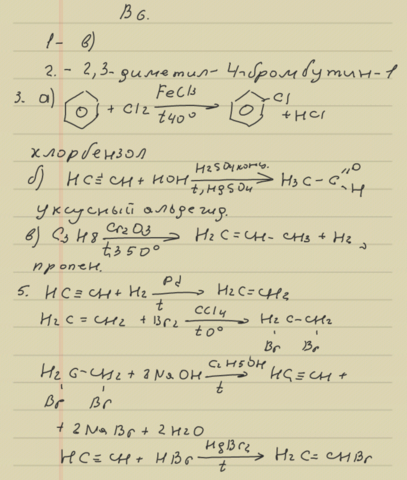 В 6.
1- в)
2. - 2,3-диметил-4-бромбутин-1
3. а) + Cl2 FeCl3 t40° → Cl + HCl
хлорбензол
б) HC≡CH + HOH H2SO4конц. t, HgSO4 → H3C-C O H
уксусный альдегид.
в) C3H8 Cr2O3 t,350° → H2C=CH-CH3 + H2,
пропен.
5. HC≡CH + H2 Pd t → H2C=CH2
H2C=CH2 + Br2 CCl4 t0° → H2C-CH2
Br Br
H2C-CH2 + 2NaOH C2H5OH t → HC≡CH +
Br Br
+ 2NaBr + 2H2O
HC≡CH + HBr HgBr2 t → H2C=CHBr